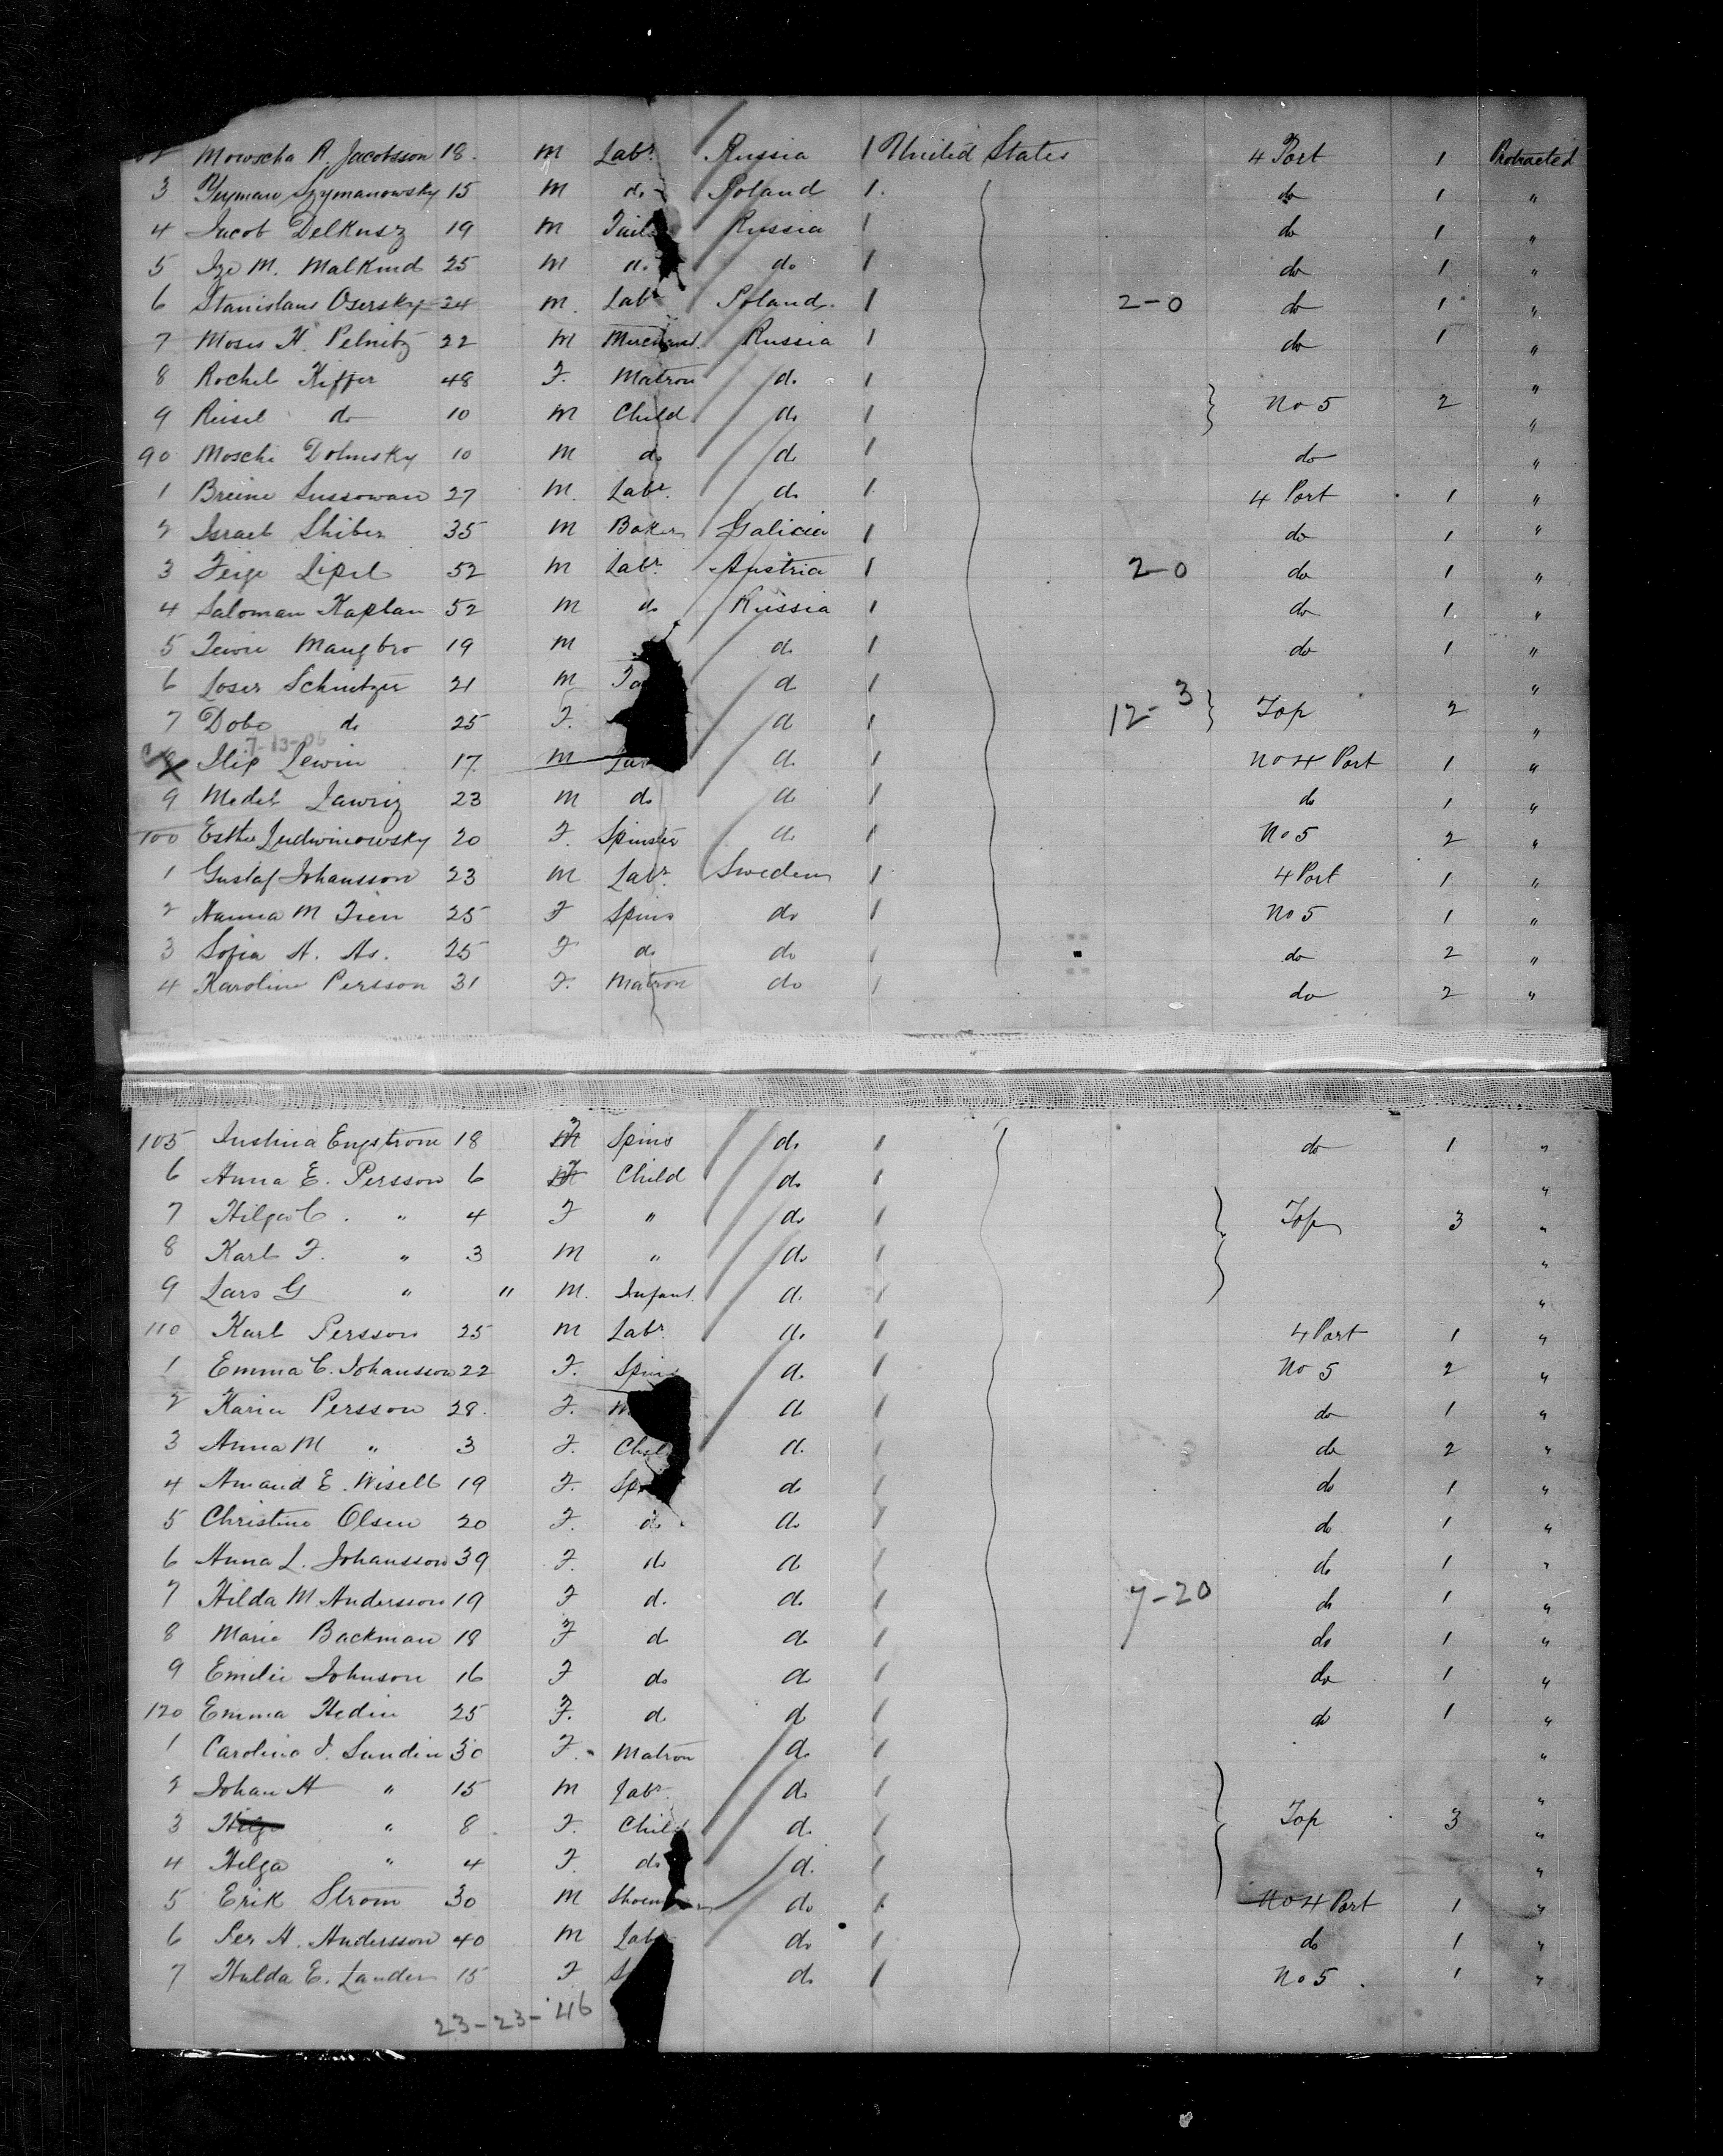 2 Mowscha R. Jacobsson 18. M Labr. Russia 1 United States 4 Port 1 Protracted
3 Szymanowsky 15 M do Poland 1. do 1 "
4 Jacob Delkusz 19 M Tail Russia 1 do 1 "
5 Ize M. Malkind 25 M do do 1 do 1 "
6 Stanislaus Osersky 24 M. Labr Poland. 1 2-0 do 1 "
7 Moses H. Pelnitz 22 M Russia 1 do 1 "
8 Rochel Kiffer 48 F. Matron do 1 "
9 Reisel do 10 M Child do 1 } No 5 2 "
90 Mosche Dolinsky 10 M do do 1 do "
1 Breine Sussowan 27 M. Labr. do 1 4 Port 1 "
2 Israel Shiber 35 M Baker Galicia 1 do 1 "
3 Feige Lipel 52 M Labr. Austria 1 2-0 do 1 "
4 Saloman Kaplan 52 M do Russia 1 do 1 "
5 Mangbro 19 M do 1 do 1 "
6 Loser Schnitzer 21 M Ta d 1 "
7 Dobe do 25 F. d 1 12-3 } Top 2 "
7-13-06
8 Lewin 17. M Lab d. 1 No 4 Port 1 "
9 Medel 23 M do do 1 do 1 "
100 Esther Ludwinowsky 20 F. Spinster do 1 No 5 2 "
1 Gustaf Johansson 23 M Labr. Sweden 1 4 Port 1 "
2 Hanna M 25 F Spins do 1 No 5 1 "
3 Sofia A. As. 25 F do do 1 do 2 "
4 Karolin Persson 31 F. Matron do 1 do 2 "
105 Justina Engstrom 18 F Spins do 1 do 1 "
6 Anna E. Persson 6 F Child do 1 "
7 C. " 4 F " do 1 } Top 3 "
8 Karl F. " 3 M " do 1 "
9 Lars G " " M. Infant. d. 1 "
110 Karl Persson 25 M Labr. do 1 4 Port 1 "
1 Emma C. Johansson 22 F. Spins d. 1 No 5 2 "
2 Karin Persson 28. F. M d 1 do 1 "
3 Anna M " 3 F. Chil d. 1 do 2 "
4 Amand E. Wisell 19 F. Sp do 1 do 1 "
5 Christine Olsen 20 F. do do 1 do 1 "
6 Anna L. Johansson 39 F. do d 1 do 1 "
7 Hilda M Andersson 19 F d. do 1 7-20 do 1 "
8 Marie Backman 18 F d d 1 do 1 "
9 Emilie Johnson 16 F do do 1 do 1 "
120 Emma Hedin 25 F. d d 1 do 1 "
1 Carolina J. Sundin 30 F. Matron d. 1 "
2 Johan A " 15 M Labr. d. 1 "
3 " 8 F. Child d. 1 } Top 3 "
4 Helga " 4 F. do d. 1 "
5 Erik Strom 30 M do 1 No 4 Port 1 "
6 Per A. Andersson 40 M Lab do 1 do 1 "
7 Hulda E. Lander 15 F S do 1 No 5 . 1 "
23-23-'46